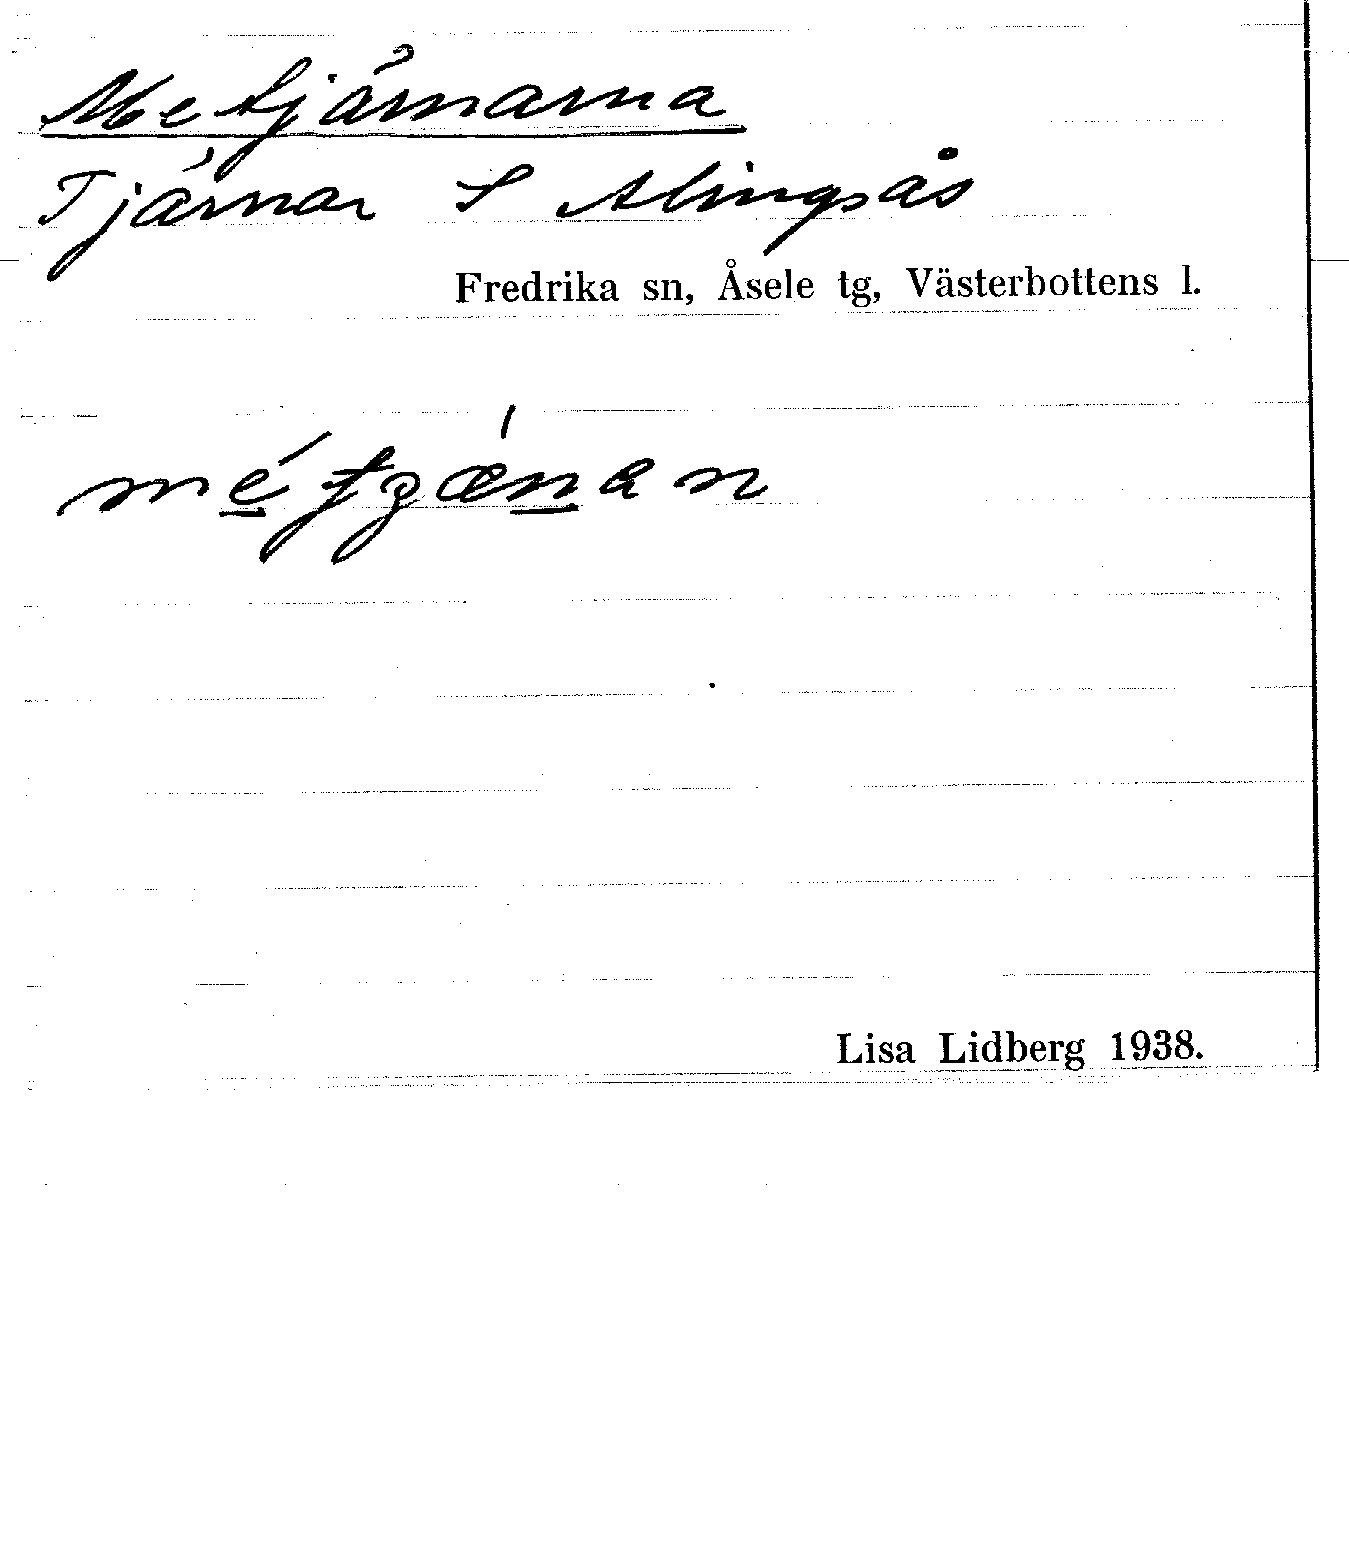 Metjärnarna
Tjärnar S Alingsås
Fredrika sn, Åsele tg, Västerbottens l.
Lisa Lidberg 1938.